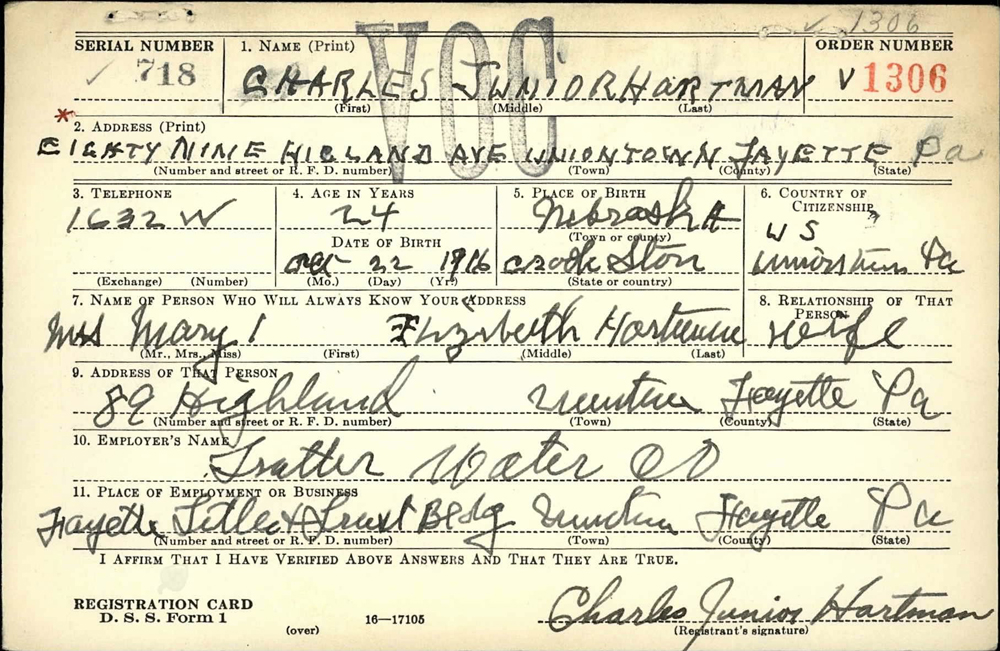 1306
VOC
SERIAL NUMBER 1. NAME (Print) ORDER NUMBER
✓ 718 CHARLES JUNIOR HARTMAN V 1306
(First) (Middle) (Last)
* 2. ADDRESS (Print)
EIGHTY NINE HIGLAND AVE UNIONTOWN FAYETTE Pa
(Number and street or R. F. D. number) (Town) (County) (State)
3. TELEPHONE 4. AGE IN YEARS 5. PLACE OF BIRTH 6. COUNTRY OF CITIZENSHIP
1632 W 24 Nebraska U S
DATE OF BIRTH (Town or county)
Oct 22 1916 Crookston Pa
(Exchange) (Number) (Mo.) (Day) (Yr.) (State or country)
7. NAME OF PERSON WHO WILL ALWAYS KNOW YOUR ADDRESS 8. RELATIONSHIP OF THAT PERSON
Mrs Mary Elizabeth Hartman Wife
(Mr., Mrs., Miss) (First) (Middle) (Last)
9. ADDRESS OF THAT PERSON
89 Highland Fayette Pa
(Number and street or R. F. D. number) (Town) (County) (State)
10. EMPLOYER'S NAME
Trotter Water CO
11. PLACE OF EMPLOYMENT OR BUSINESS
Fayette Title & Trust Bldg Fayette Pa
(Number and street or R. F. D. number) (Town) (County) (State)
I AFFIRM THAT I HAVE VERIFIED ABOVE ANSWERS AND THAT THEY ARE TRUE.
REGISTRATION CARD
D. S. S. Form 1 (over) 16—17105
Charles Junior Hartman
(Registrant's signature)